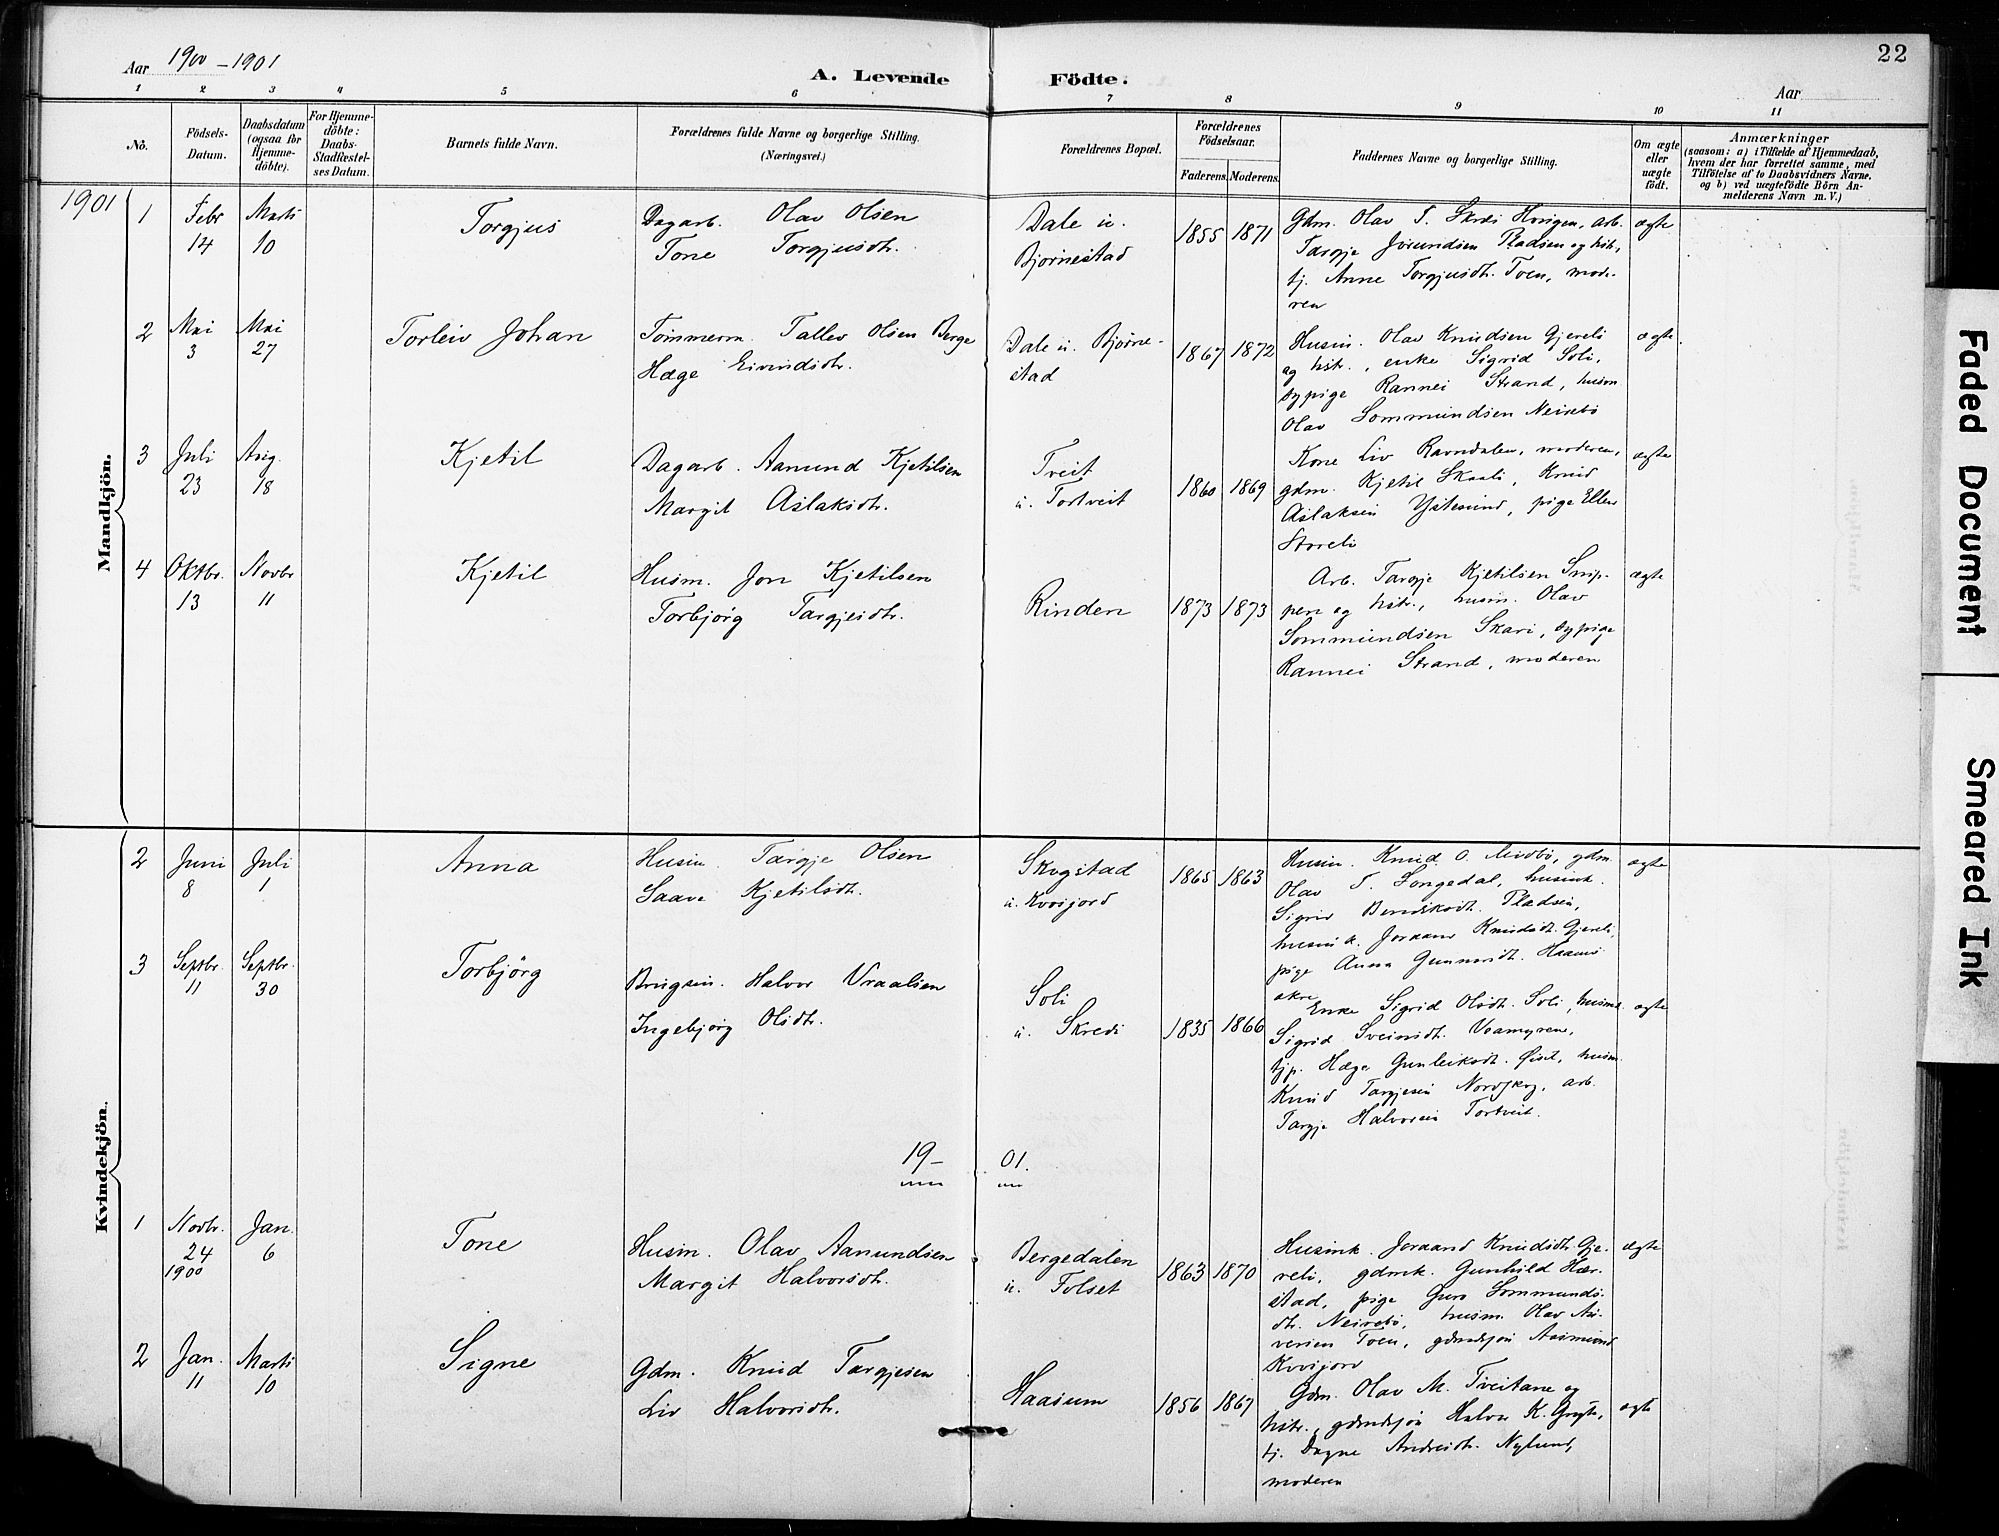 Aar 1900 – 1901
A. Levende Födte.
22
Aar
1 2 3 4 5 6 7 8 9 10 11
No.
Födsels-
Datum.
Daabsdatum
(ogsaa for
Hjemme-
döbte).
For Hjemme-
döbte:
Daabs-
Stadfæstel-
ses Datum.
Barnets fulde Navn.
Forældrenes fulde Navne og borgerlige Stilling.
(Næringsvei.)
Forældrenes Bopæl.
Forældrenes
Födselsaar.
Faderens. Moderens.
Faddernes Navne og borgerlige Stilling.
Om ægte
eller
uægte
födt.
Anmærkninger
(saasom: a) i Tilfælde af Hjemmedaab,
hvem der har forrettet samme, med
Tilföielse af to Daabsvidners Navne.
og b) ved uægtefödte Börn An-
melderens Navn m. V.)
Mandkjön.
1901
1
Febr
14
Marts
10
Torgjus
Dagarb. Olav Olsen
Tone Torgjusdtr.
Dale u.
Bjørnestad
1855 1871
Gdm. Olav T. Skredi Hovigen, arb.
Targje Jorundsen Pladsen og hstr.,
tj. Anne Torgjusdtr. Toen, mode-
ren
ægte
2
Mai
3
Mai
27
Torleiv Johan
Tømmerm. Tallev Olsen Berge
Hæge Eivindsdtr.
Dale u. Bjørne-
stad
1867 1872
Husm. Olav Knudsen Gjereli
og hstr., enke Sigrid Soli,
sypige Rannei Strand, husm
Olav Sommundsen Neirebø
ægte
3
Juli
23
Aug.
18
Kjetil
Dagarb. Aamund Kjetilsen
Margit Aslaksdtr.
Tveit
u. Tortveit
1860 1869
Kone Liv Ravndalen, moderen,
gdm. Kjetil Skaali, Knud
Aslaksen Ystesund, pige Ellen
Storeli
ægte
4
Oktbr.
13
Novbr
11
Kjetil
Husm. Jon Kjetilsen
Torbjørg Targjesdtr.
Rinden
1873 1873
Arb. Targje Kjetilsen Snip-
pen og hstr., husm. Olav
Sommundsen Skari, sypige
Rannei Strand, moderen
ægte
Kvindekjön.
2
Juni
8
Juli
1
Anna
Husm. Targje Olsen
Saave Kjetilsdtr.
Skogstad
u. Kvosjord
1865 1863
Husm. Knud O. Neirebø, gdm.
Olav T. Songedal, husmk.
Sigrid Pladsen,
husmk. Joraand Knudsdtr. Gjereli,
pige Anna Gunnarsdtr. Haamo-
akre
ægte
3
Septbr.
11
Septbr.
30
Torbjörg
Brugsm. Halvor Vraalsen
Ingebjørg Olsdtr.
Soli
u. Skredi
1835 1866
Enke Sigrid Olsdtr. Soli, husmk
Sigrid Sveinsdtr. Voamyrene,
tjp. Hæge Gunleiksdtr. Øiset, husm.
Knud Targjesen Nordskog, arb.
Targje Halvorsen Tortveit.
ægte
19– 01.
1
Novbr.
24
1900
Jan.
6
Tone
Husm. Olav Aamundsen
Margit Halvorsdtr.
Bergedalen
u. Folset
1863 1870
Husmk. Joraand Knudsdtr. Gje-
reli, gdmk. Gunhild Hær-
stad, pige Guro Sommunds-
dtr. Neirebø, husm. Olav
Toen, gdmdssøn Aamund
Kvosjord
ægte
2
Jan.
11
Marts
10
Signe
Gdm. Knud Targjesen
Liv Halvorsdtr.
Haasum
1856 1867
Gdm. Olav M. Tveitane og
hstr., gdmdssøn Halvor K.
tj. Dagne Andresdtr. Nylund,
moderen
ægte
Faded Document
Smeared Ink